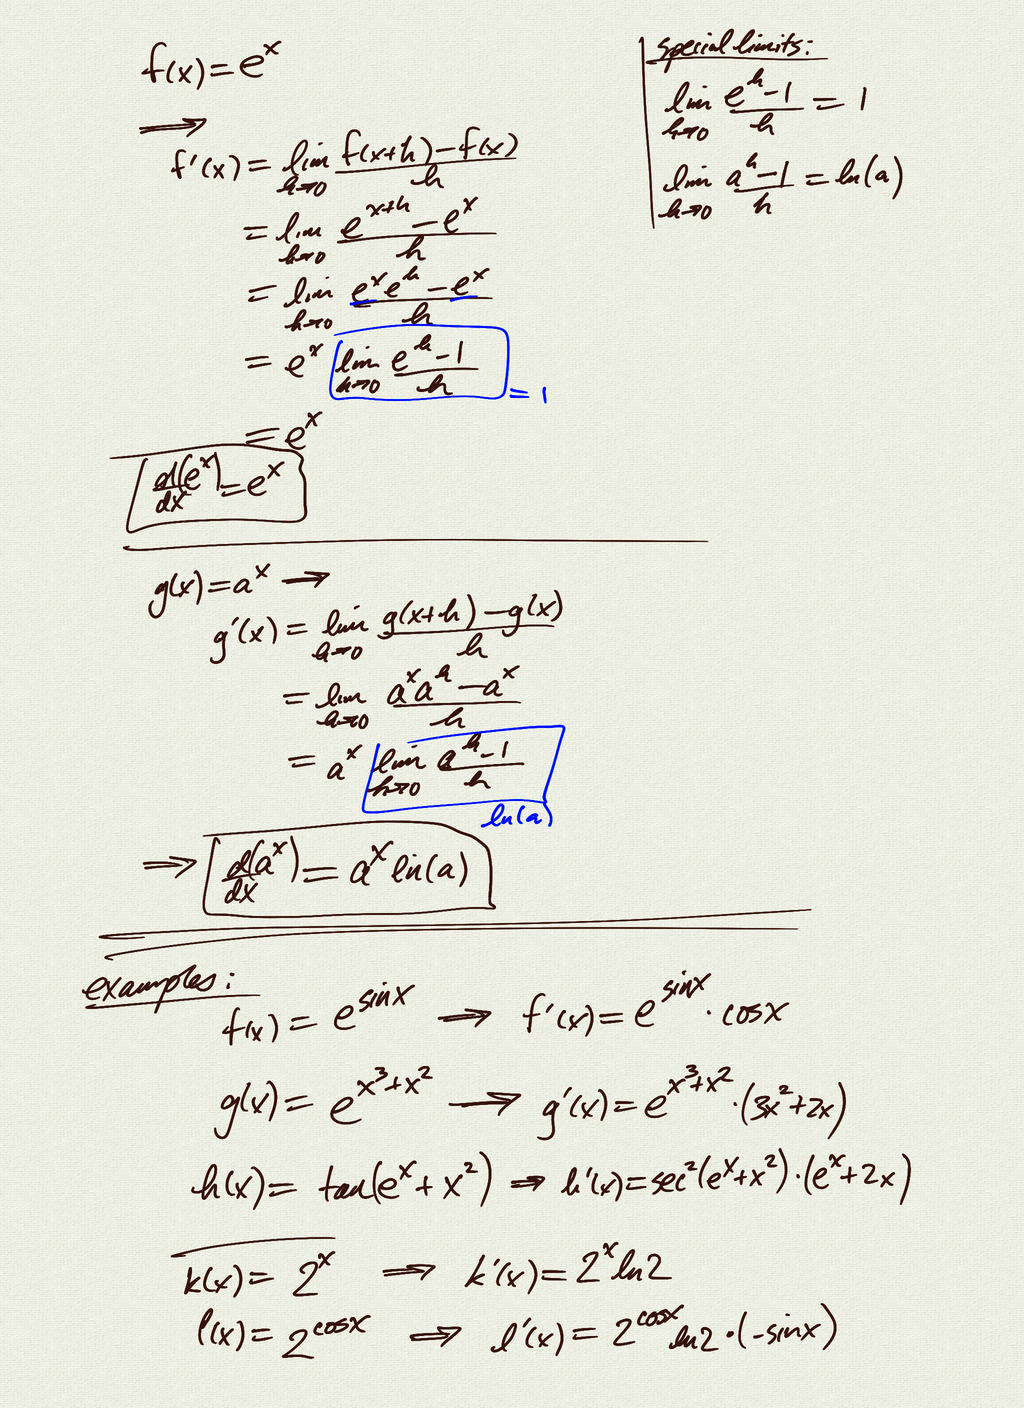 f(x) = e^x
⟹
f'(x) = lim_{h→0} (f(x+h) − f(x))/h
= lim_{h→0} (e^{x+h} − e^x)/h
= lim_{h→0} (e^x e^h − e^x)/h
= e^x lim_{h→0} (e^h − 1)/h = 1
= e^x
d(e^x)/dx = e^x
special limits:
lim_{h→0} (e^h − 1)/h = 1
lim_{h→0} (a^h − 1)/h = ln(a)
g(x) = a^x ⟹
g'(x) = lim_{h→0} (g(x+h) − g(x))/h
= lim_{h→0} (a^x a^h − a^x)/h
= a^x lim_{h→0} (a^h − 1)/h
ln(a)
⟹ d(a^x)/dx = a^x ln(a)
examples:
f(x) = e^{sinx} ⟹ f'(x) = e^{sinx} · cosx
g(x) = e^{x^3+x^2} ⟹ g'(x) = e^{x^3+x^2} · (3x^2+2x)
h(x) = tan(e^x + x^2) ⟹ h'(x) = sec^2(e^x+x^2) · (e^x+2x)
k(x) = 2^x ⟹ k'(x) = 2^x ln2
l(x) = 2^{cosx} ⟹ l'(x) = 2^{cosx} ln2 · (−sinx)